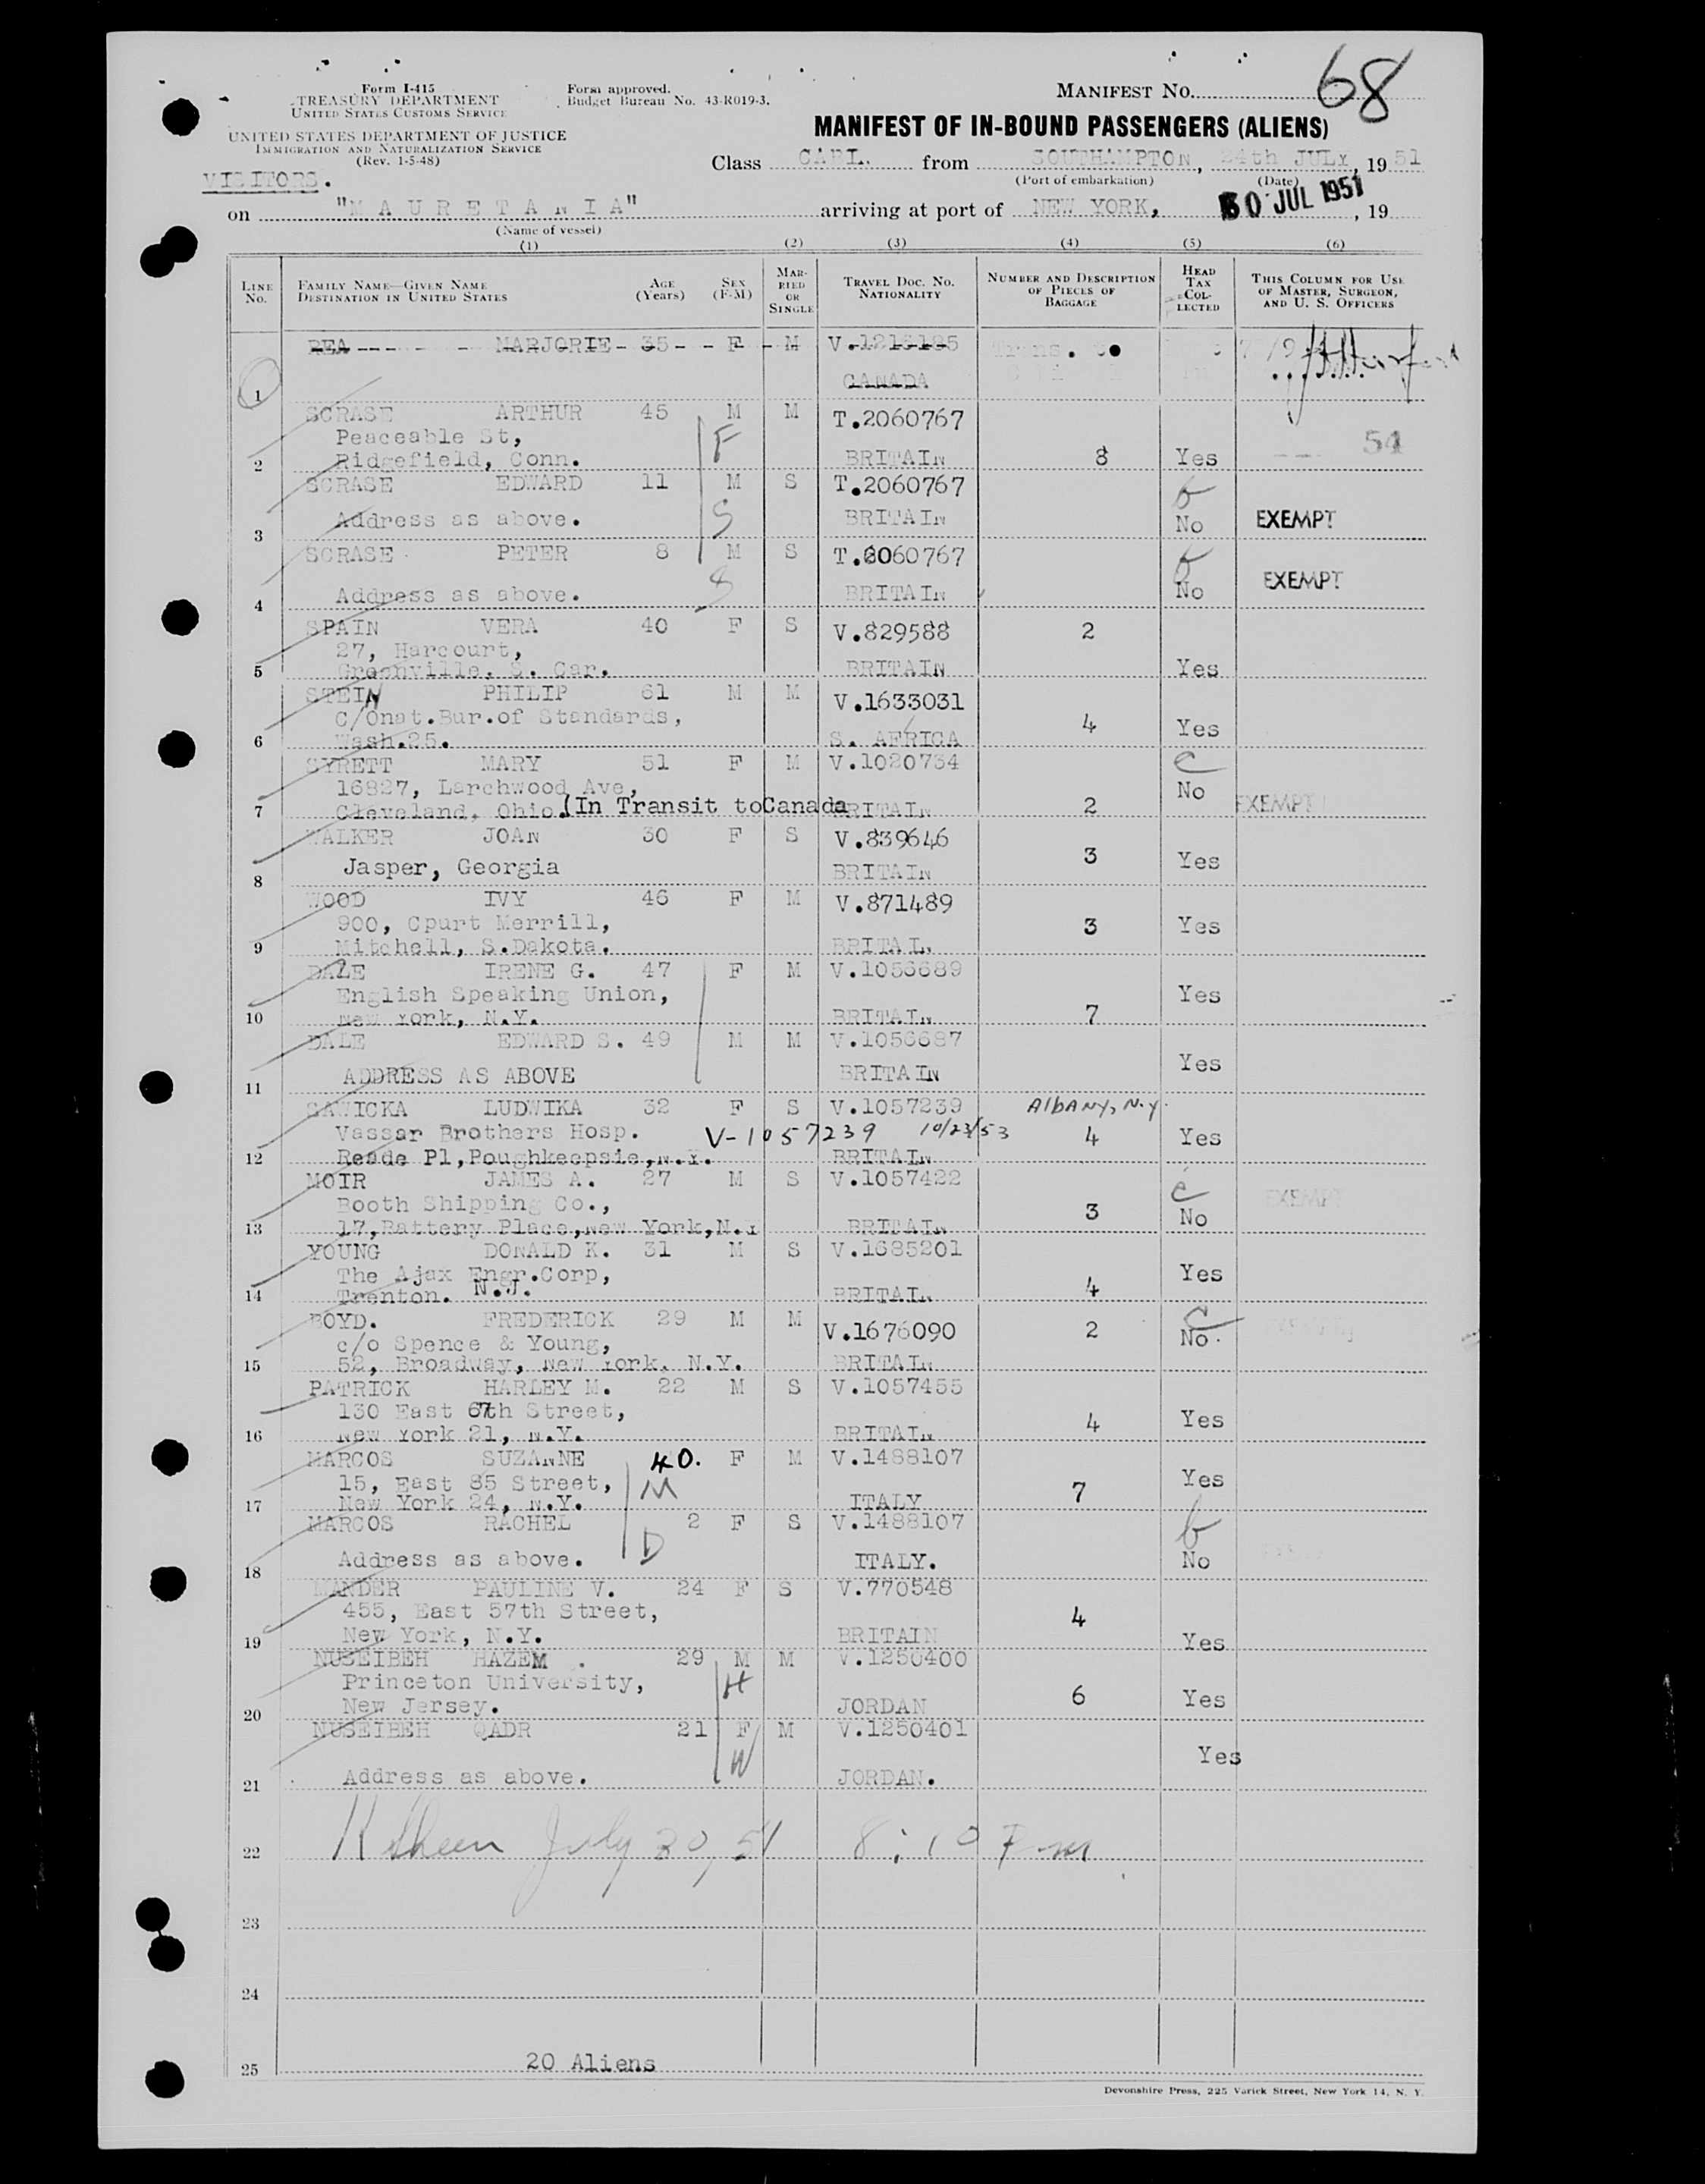 Form I-415
TREASURY DEPARTMENT
UNITED STATES CUSTOMS SERVICE
UNITED STATES DEPARTMENT OF JUSTICE
IMMIGRATION AND NATURALIZATION SERVICE
(Rev. 1-5-48)
Form approved.
Budget Bureau No. 43-R019-3.
MANIFEST No. 68
MANIFEST OF IN-BOUND PASSENGERS (ALIENS)
VISITORS.
Class CABI. from SOUTHAMPTON, 24th JULY, 1951
(Port of embarkation) (Date)
on "MAURETANIA" arriving at port of NEW YORK, 30 JUL 1951, 19
(Name of vessel)
(1) (2) (3) (4) (5) (6)
LINE No. FAMILY NAME—GIVEN NAME DESTINATION IN UNITED STATES AGE (Years) SEX (F-M) MARRIED OR SINGLE TRAVEL DOC. No. NATIONALITY NUMBER AND DESCRIPTION OF PIECES OF BAGGAGE HEAD TAX COLLECTED THIS COLUMN FOR USE OF MASTER, SURGEON, AND U. S. OFFICERS
REA MARJORIE 35 F M V.1216185
CANADA
1
SCRASE ARTHUR 45 M M T.2060767
Peaceable St, F 54
2 Ridgefield, Conn. BRITAIN 8 Yes
SCRASE EDWARD 11 M S T.2060767
Address as above. S BRITAIN b No EXEMPT
3
SCRASE PETER 8 M S T.2060767
4 Address as above. S BRITAIN b No EXEMPT
SPAIN VERA 40 F S V.829588 2
27, Harcourt,
5 Greenville, S. Car. BRITAIN Yes
STEIN PHILIP 61 M M V.1633031
C/Onat.Bur.of Standards, 4 Yes
6 Wash.25. S. AFRICA
SYRETT MARY 51 F M V.1020734 C
16827, Larchwood Ave, No
7 Cleveland, Ohio.(In Transit toCanada BRITAIN 2 EXEMPT
WALKER JOAN 30 F S V.839646
Jasper, Georgia 3 Yes
8 BRITAIN
WOOD IVY 46 F M V.871489
900, Cpurt Merrill, 3 Yes
9 Mitchell, S.Dakota. BRITAIN
DALE IRENE G. 47 F M V.1056689
English Speaking Union, Yes
10 New York, N.Y. BRITAIN 7
DALE EDWARD S. 49 M M V.1056687
Yes
11 ADDRESS AS ABOVE BRITAIN
SAWICKA LUDWIKA 32 F S V.1057239 Albany, N.Y.
Vassar Brothers Hosp. V-1057239 10/23/53 4 Yes
12 Reade Pl,Poughkeepsie,N.Y. BRITAIN
MOIR JAMES A. 27 M S V.1057422 c EXEMPT
Booth Shipping Co., 3 No
13 17,Battery Place,New York,N.Y BRITAIN
YOUNG DONALD K. 31 M S V.1685201
The Ajax Engr.Corp, Yes
14 Trenton. N.J. BRITAIN 4
BOYD. FREDERICK 29 M M V.1676090 2 C No.
c/o Spence & Young,
15 52, Broadway, New York. N.Y. BRITAIN
PATRICK HARLEY M. 22 M S V.1057455
130 East 67th Street, 4 Yes
16 New York 21, N.Y. BRITAIN
MARCOS SUZANNE 40. F M V.1488107
15, East 85 Street, M 7 Yes
17 New York 24, N.Y. ITALY
MARCOS RACHEL 2 F S V.1488107 b
18 Address as above. D ITALY. No
MANDER PAULINE V. 24 F S V.770548
455, East 57th Street, 4
19 New York, N.Y. BRITAIN Yes
NUSEIBEH HAZEM . 29 M M V.1250400
Princeton University, H
20 New Jersey. JORDAN 6 Yes
NUSEIBEH QADR 21 F M V.1250401
W Yes
21 Address as above. JORDAN.
22 July 30, 51 8:10 Pm
23
24
25 20 Aliens
Devonshire Press, 225 Varick Street, New York 14, N. Y.